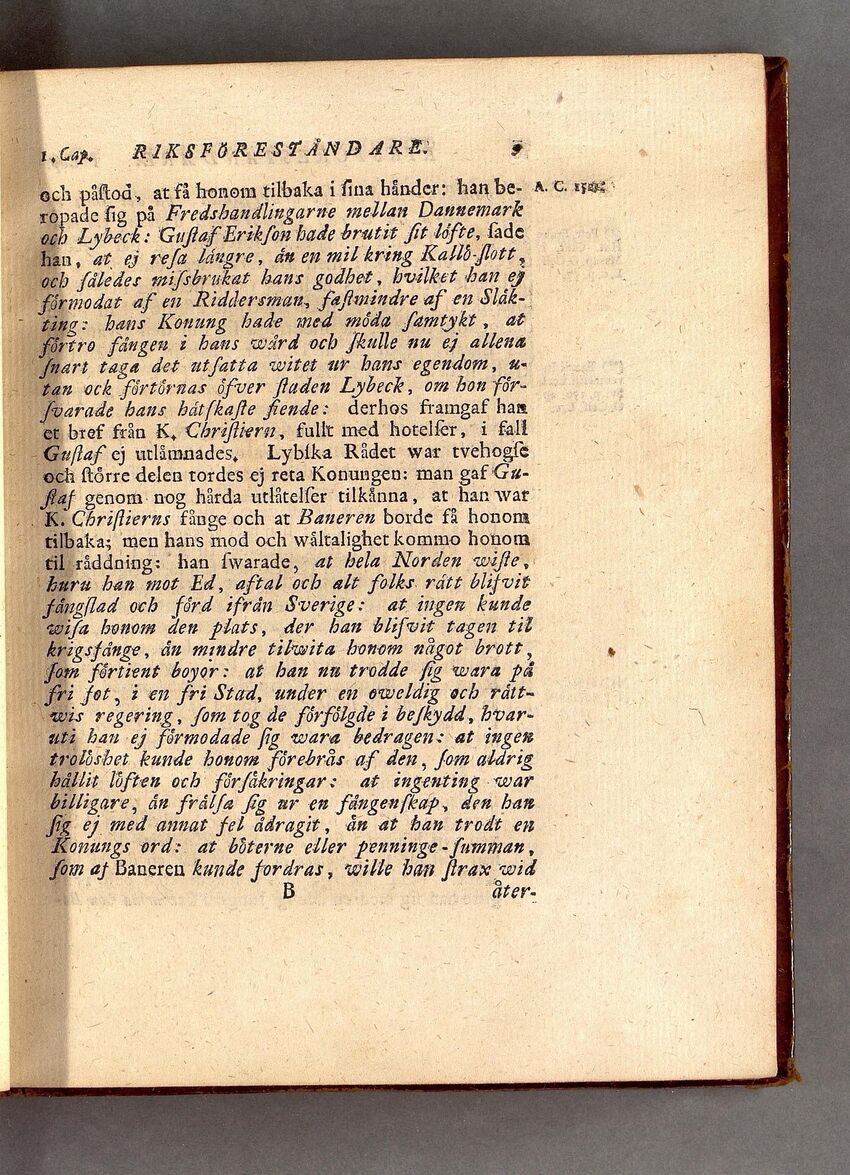 1. Cap. RIKSFÖRESTÅNDARE. 9
och påstod, at få honom tilbaka i sina händer: han be- A. C.
ropade sig på Fredshandlingarne mellan Dannemark
och Lybeck: Gustaf Erikson hade brutit sit löfte, sade
han, at ej resa längre, än en mil kring Kallö-slott,
och således missbrukat hans godhet, hvilket han ej
förmodat af en Riddersman, fastmindre af en Släk-
ting: hans Konung hade med möda samtykt, at
förtro fången i hans wård och skulle nu ej allena
snart taga det utsatta witet ur hans egendom, u-
tan ock förtörnas öfver staden Lybeck, om hon för-
svarade hans hätskaste fiende: derhos framgaf han
et bref från K. Christiern, fullt med hotelser, i fall
Gustaf ej utlämnades. Lybska Rådet war tvehogse
och större delen tordes ej reta Konungen: man gaf Gu-
staf genom nog hårda utlåtelser tilkänna, at han war
K. Christierns fånge och at Baneren borde få honom
tilbaka; men hans mod och wältalighet kommo honom
til räddning: han swarade, at hela Norden wiste,
huru han mot Ed, aftal och alt folks rätt blifvit
fängslad och förd ifrån Sverige: at ingen kunde
wisa honom den plats, der han blifvit tagen til
krigsfånge, än mindre tilwita honom något brott,
som förtient boyor: at han nu trodde sig wara på
fri fot, i en fri Stad, under en oweldig och rätt-
wis regering, som tog de förfölgde i beskydd, hvar-
uti han ej förmodade sig wara bedragen: at ingen
trolöshet kunde honom förebrås af den, som aldrig
hållit löften och försäkringar: at ingenting war
billigare, än frälsa sig ur en fångenskap, den han
sig ej med annat fel ådragit, än at han trodt en
Konungs ord: at böterne eller penninge-summan,
som af Baneren kunde fordras, wille han strax wid
B åter-